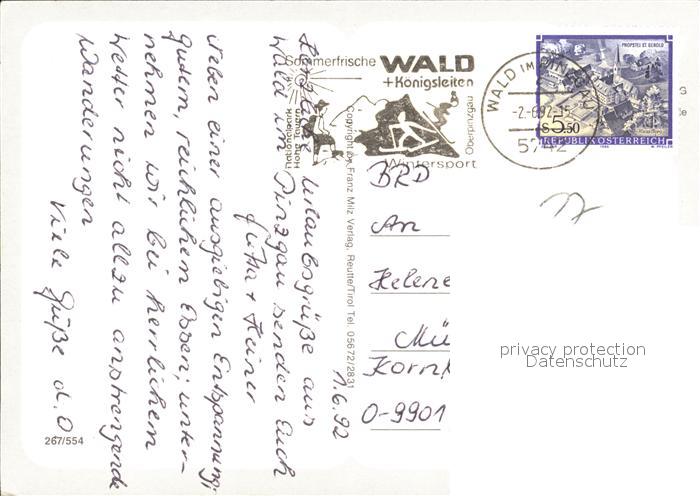 Sommerfrische WALD
+Königsleiten
Nationalpark
Hohe Tauern
Oberpinzgau
Wintersport
WALD IM PINZGAU
-2.-6.92-15
5742
PROPSTEI ST. GEROLD
S 5.50
REPUBLIK ÖSTERREICH
1986
W. PFEILER
1.6.92
Herzliche Urlaubsgrüße aus
Wald im Pinzgau senden Euch
Jutta + Heiner
Neben einer ausgiebigen Entspannung;
gutem, reichlichem Essen; unter-
nehmen wir bei herrlichem
Wetter nicht allzu anstrengende
Wanderungen
Viele Grüße d. O
Copyright by Franz Milz Verlag, Reutte/Tirol Tel. 05672/2831
BRD
An
Helene
Mü
Korn
O-9901
267/554
privacy protection
Datenschutz